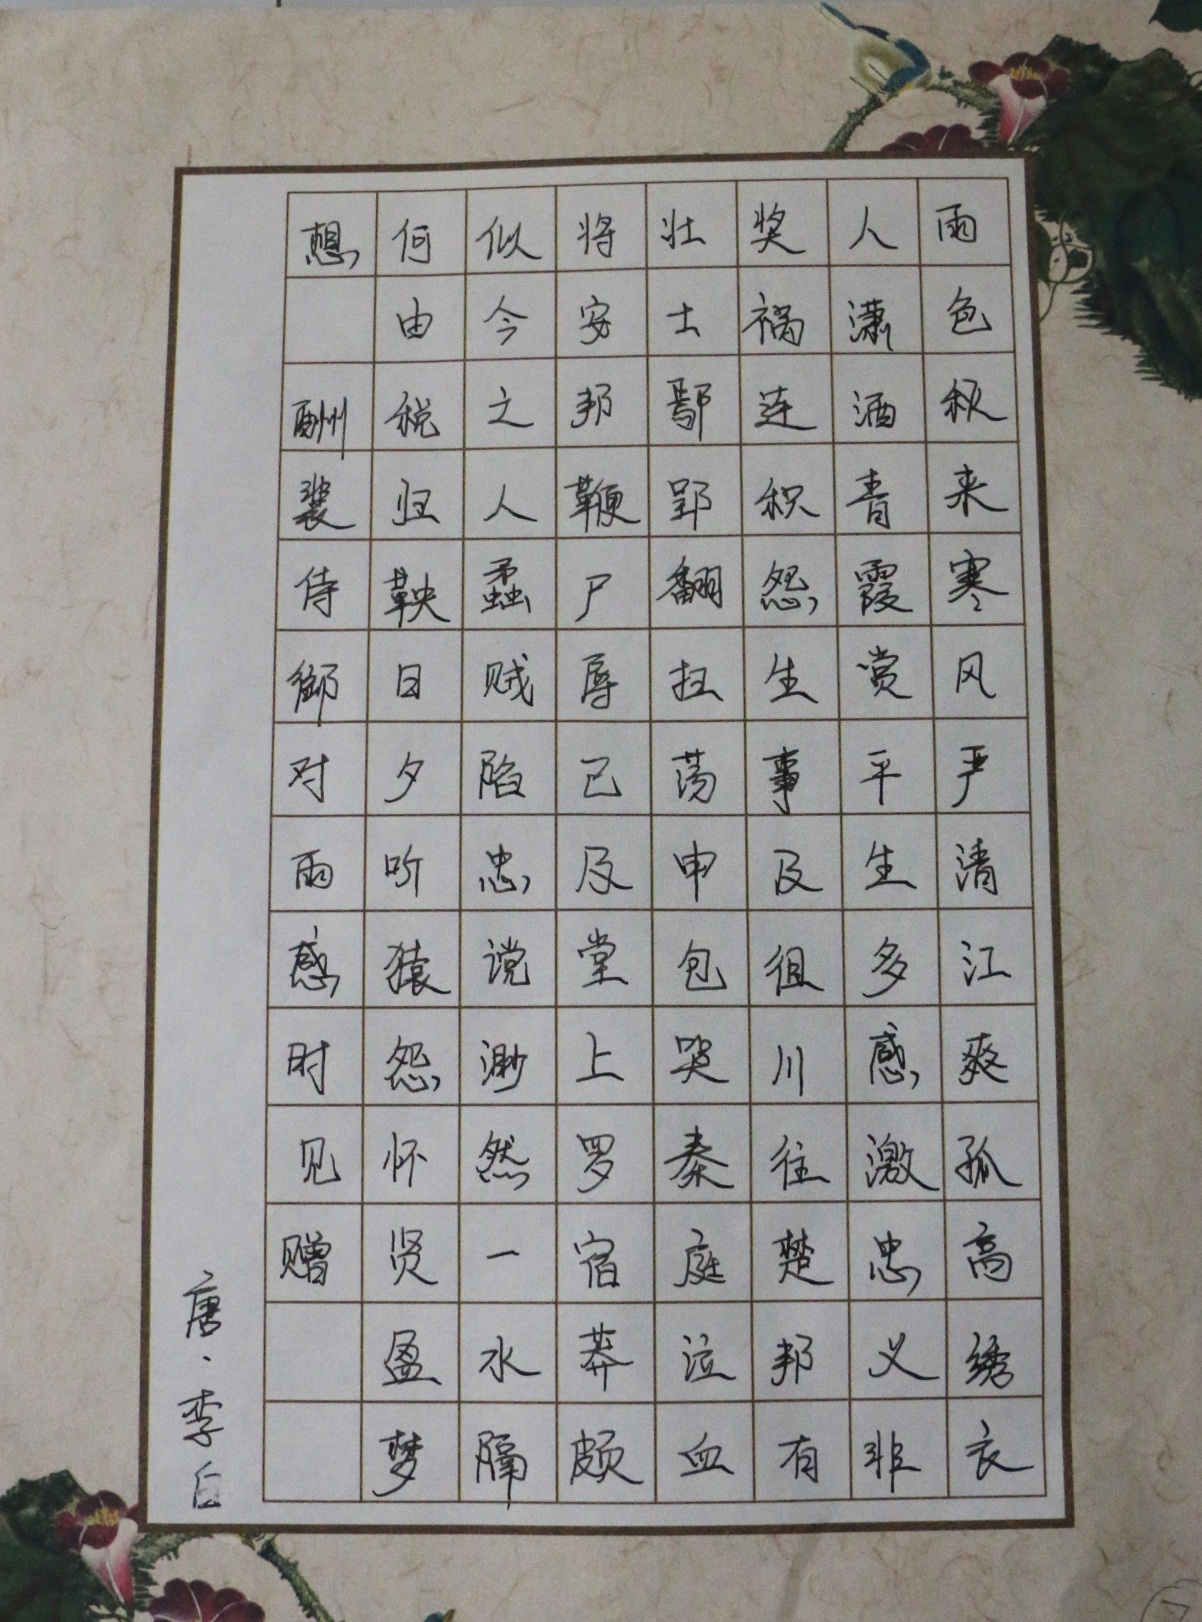 雨色秋来寒风严清江爽孤高绣衣
人潇洒青霞赏平生多感激忠义非
奖祸连积怨生事及徂川往楚邦有
壮士鄢郢翻扫荡申包哭秦庭泣血
将安邦鞭尸辱已及堂上罗宿莽颇
似今之人蟊贼陷忠谠渺然一水隔
何由税归鞅日夕听猿怨怀贤盈梦
想 酬裴侍御对雨感时见赠
唐·李白